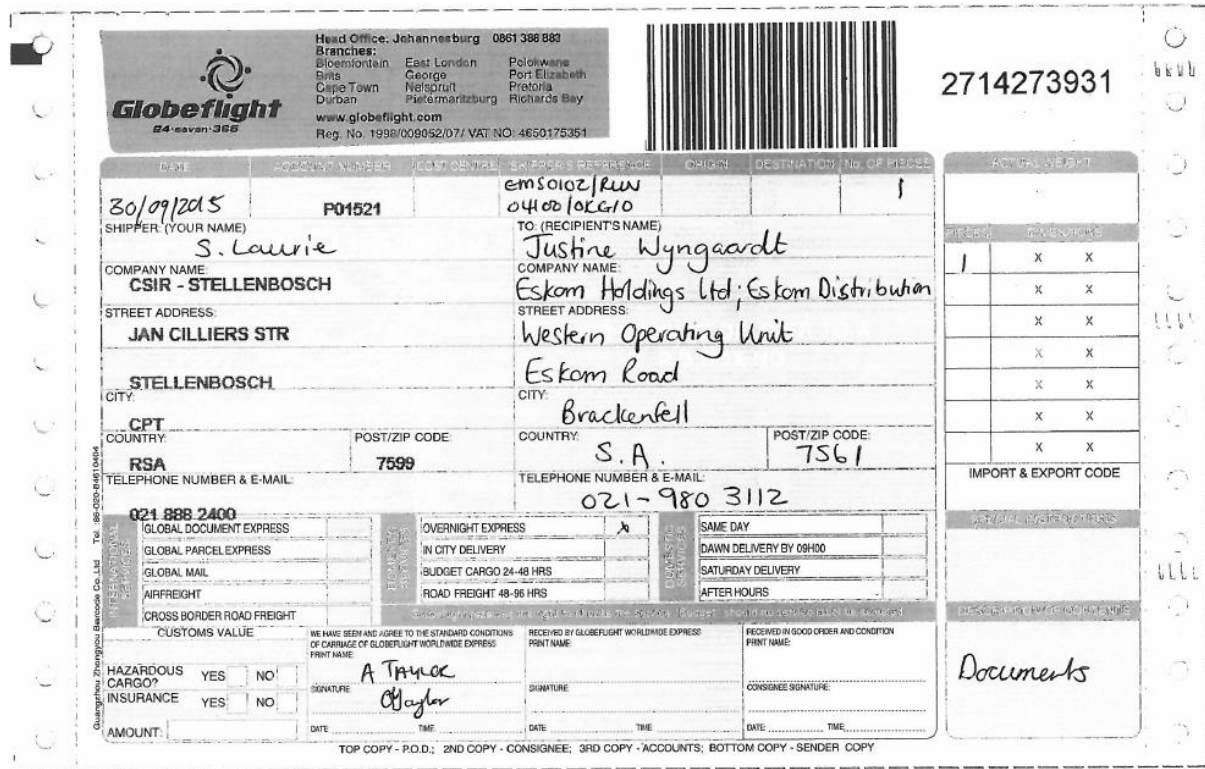 Head Office: Johannesburg 0861 386 883
Branches:
Bloemfontein East London Polokwane
Brits George Port Elizabeth
Cape Town Nelspruit Pretoria
Durban Pietermaritzburg Richards Bay
www.globeflight.com
Reg. No. 1998/009052/07/ VAT NO: 4650175351
Globeflight
24·seven·365
2714273931
DATE ACCOUNT NUMBER COST CENTRE SHIPPER'S REFERENCE ORIGIN DESTINATION No. OF PIECES
30/09/2015 P01521 EMS0102/RUN 1
04100/0KG10
SHIPPER: (YOUR NAME)
S. Laurie
COMPANY NAME:
CSIR - STELLENBOSCH
STREET ADDRESS:
JAN CILLIERS STR
STELLENBOSCH
CITY:
CPT
COUNTRY: POST/ZIP CODE:
RSA 7599
TELEPHONE NUMBER & E-MAIL:
021 888 2400
TO: (RECIPIENT'S NAME)
Justine Wyngaardt
COMPANY NAME:
Eskom Holdings Ltd; Eskom Distribution
STREET ADDRESS:
Western Operating Unit
Eskom Road
CITY:
Brackenfell
COUNTRY: POST/ZIP CODE:
S.A. 7561
TELEPHONE NUMBER & E-MAIL:
021-980 3112
ACTUAL WEIGHT
PIECES DIMENSIONS
1 X X
X X
X X
X X
X X
X X
X X
IMPORT & EXPORT CODE
GLOBAL DOCUMENT EXPRESS
GLOBAL PARCEL EXPRESS
GLOBAL MAIL
AIRFREIGHT
CROSS BORDER ROAD FREIGHT
OVERNIGHT EXPRESS X
IN CITY DELIVERY
BUDGET CARGO 24-48 HRS
ROAD FREIGHT 48-96 HRS
SAME DAY
DAWN DELIVERY BY 09H00
SATURDAY DELIVERY
AFTER HOURS
SPECIAL INSTRUCTIONS
DESCRIPTION OF CONTENTS
Documents
CUSTOMS VALUE
HAZARDOUS CARGO? YES NO
INSURANCE YES NO
AMOUNT:
WE HAVE SEEM AND AGREE TO THE STANDARD CONDITIONS
OF CARRIAGE OF GLOBEFLIGHT WORLDWIDE EXPRESS
PRINT NAME:
A TAYLOR
SIGNATURE
DATE: TIME:
RECEIVED BY GLOBEFLIGHT WORLDWIDE EXPRESS
PRINT NAME:
SIGNATURE
DATE: TIME:
RECEIVED IN GOOD ORDER AND CONDITION
PRINT NAME:
CONSIGNEE SIGNATURE:
DATE: TIME:
TOP COPY - P.O.D.; 2ND COPY - CONSIGNEE; 3RD COPY - ACCOUNTS; BOTTOM COPY - SENDER COPY
Guangzhou Zhongyou Barcode Co., Ltd. Tel: 86-020-84610404